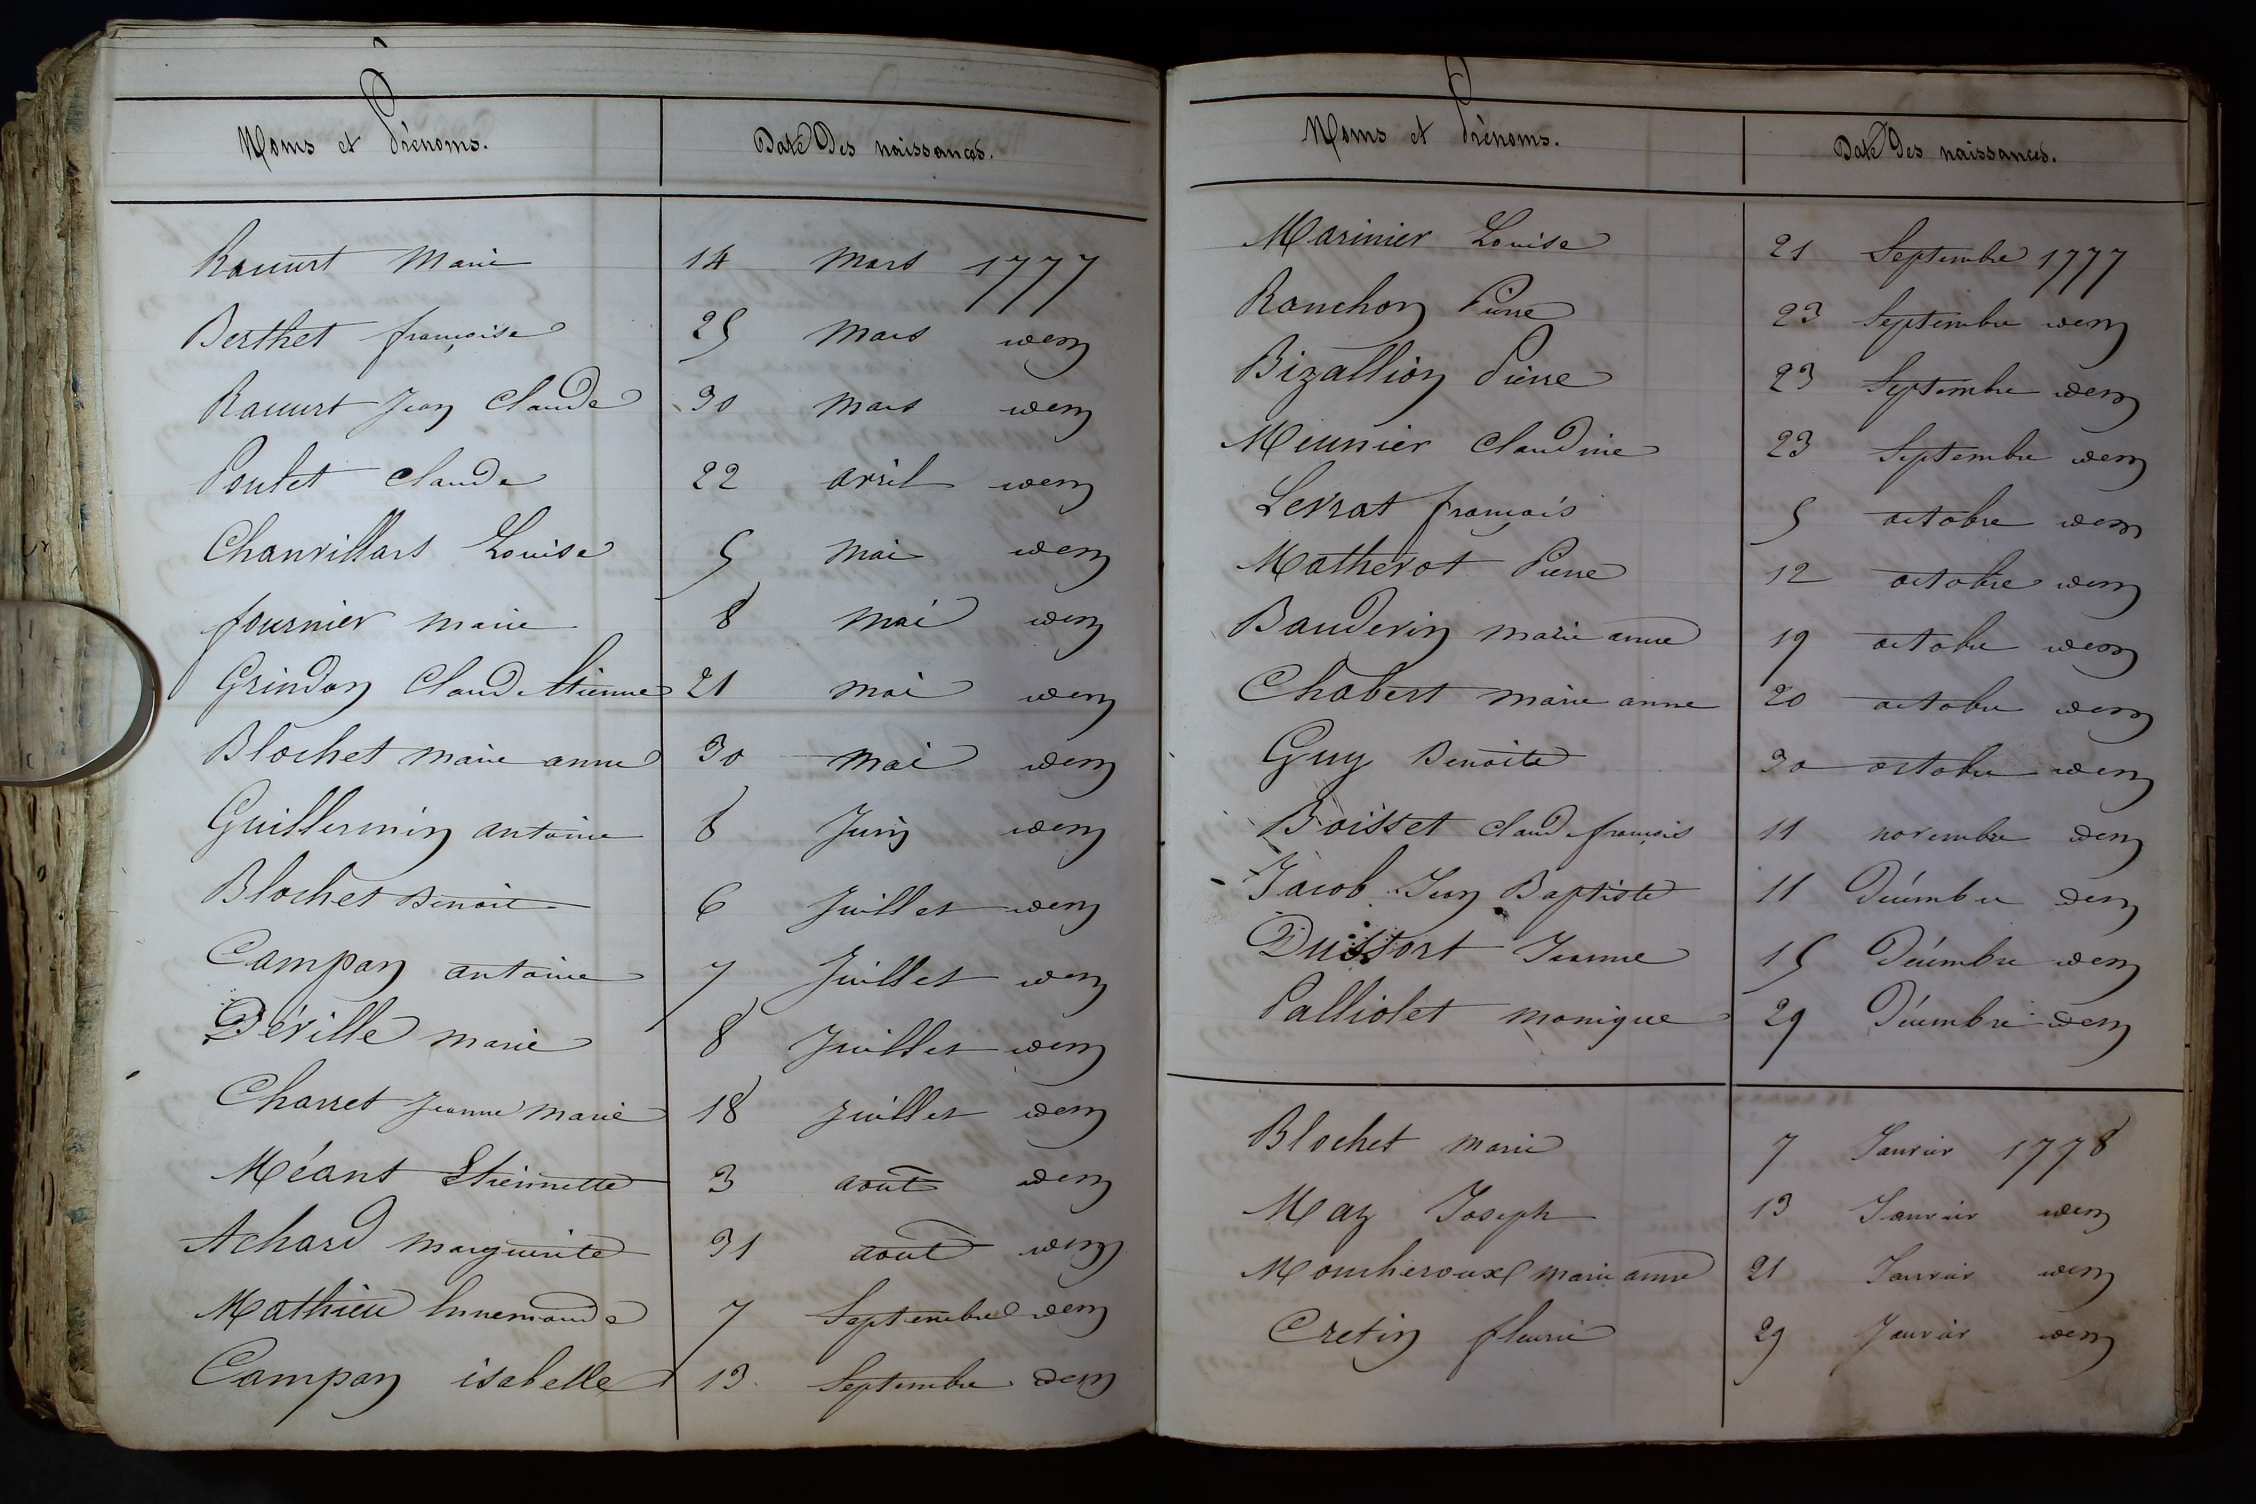 Noms et Prénoms. Date des naissances.
Rauurt Marie 14 Mars 1777
Berthet françoise 25 Mars idem
Rauurt Jean Claude 30 Mars idem
Poulet Claude 22 avril idem
Chanvillars Louise 5 Mai idem
fournier Marie 8 Mai idem
Grindon Claud Etienne 21 Mai idem
Blochet Marie anne 30 Mai idem
Guillermin antoine 6 Juin idem
Blochet Benoit 6 Juillet idem
Campan antoine 7 Juillet idem
Déville Marie 8 Juillet idem
Charret Jeanne Marie 18 Juillet idem
Méant Etiennette 3 août idem
Achard Marguerite 31 août idem
Mathieu Ennemonde 7 Septembre idem
Campan isabelle 13 Septembre idem
Noms et Prénoms. Date des naissances.
Marinier Louise 21 Septembre 1777
Ranchon Pierre 23 Septembre idem
Bizallion Pierre 23 Septembre idem
Meunier Claudine 23 Septembre idem
Levrat françois 5 octobre idem
Matherot Pierre 12 octobre idem
Bauderin Marie anne 19 octobre idem
Chabert Marie anne 20 octobre idem
Guy Benoite 30 octobre idem
Boisset Claud françois 11 novembre idem
Jacob Jean Baptiste 11 Décembre idem
Dussort Jeanne 15 Décembre idem
Palliolet Monique 29 Décembre idem
Blochet Marie 7 Janvier 1778
May Joseph 13 Janvier idem
Moucheroux Marie anne 21 Janvier idem
Cretin fleurie 29 Janvier idem